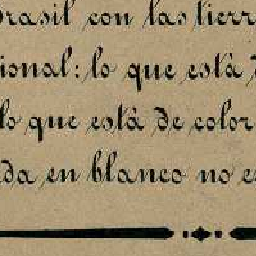 rasil con las tierr
ional: lo que està d
lo que està de color
da en blanco no es